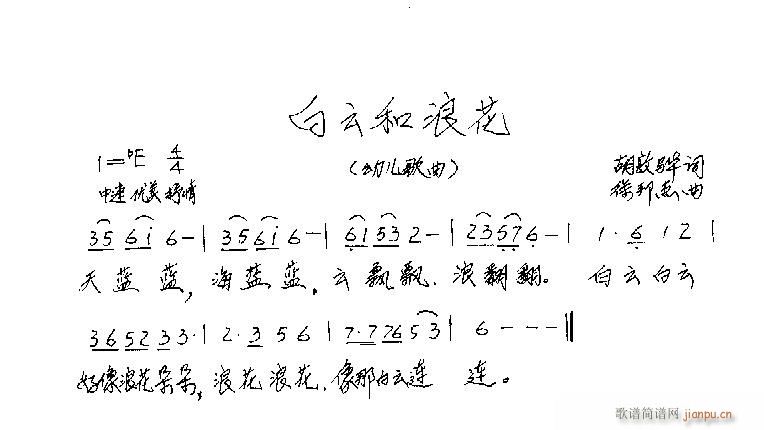 白云和浪花
1=♭E 4/4 (幼儿歌曲) 胡敦骅 词
中速 优美 抒情 徐邦杰 曲
35 6i 6 - | 35 6i 6 - | 6i 53 2 - | 23 57 6 - | 1· 6 1 2 |
天蓝蓝,海蓝蓝。云飘飘.浪翻翻。白云白云
36 52 3 3· | 2· 3 5 6 | 7·7 76 5 3 | 6 - - - ‖
好像浪花朵朵,浪花浪花.像那白云连连。
歌谱简谱网 jianpu.cn